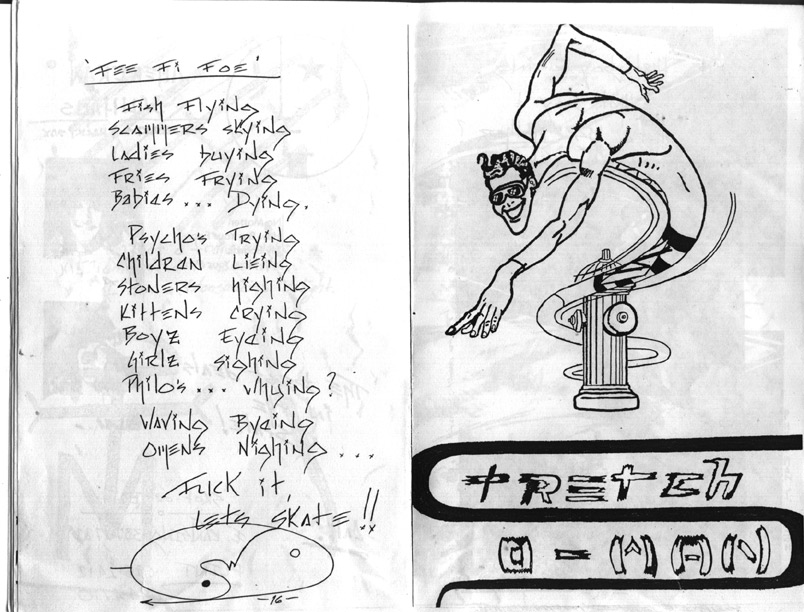 'FEE Fi FOE'
Fish Flying
Scammers skying
Ladies buying
Fries Frying
Babies ... Dying.
Psycho's Trying
Children Lieing
Stoners highing
Kittens Crying
Boyz Eyeing
Girlz Sighing
Philo's ... Whying?
Waving Byeing
Omens Nighing ...
Fuck it,
Lets skate!!
-16-
STRETCH
O-MAN